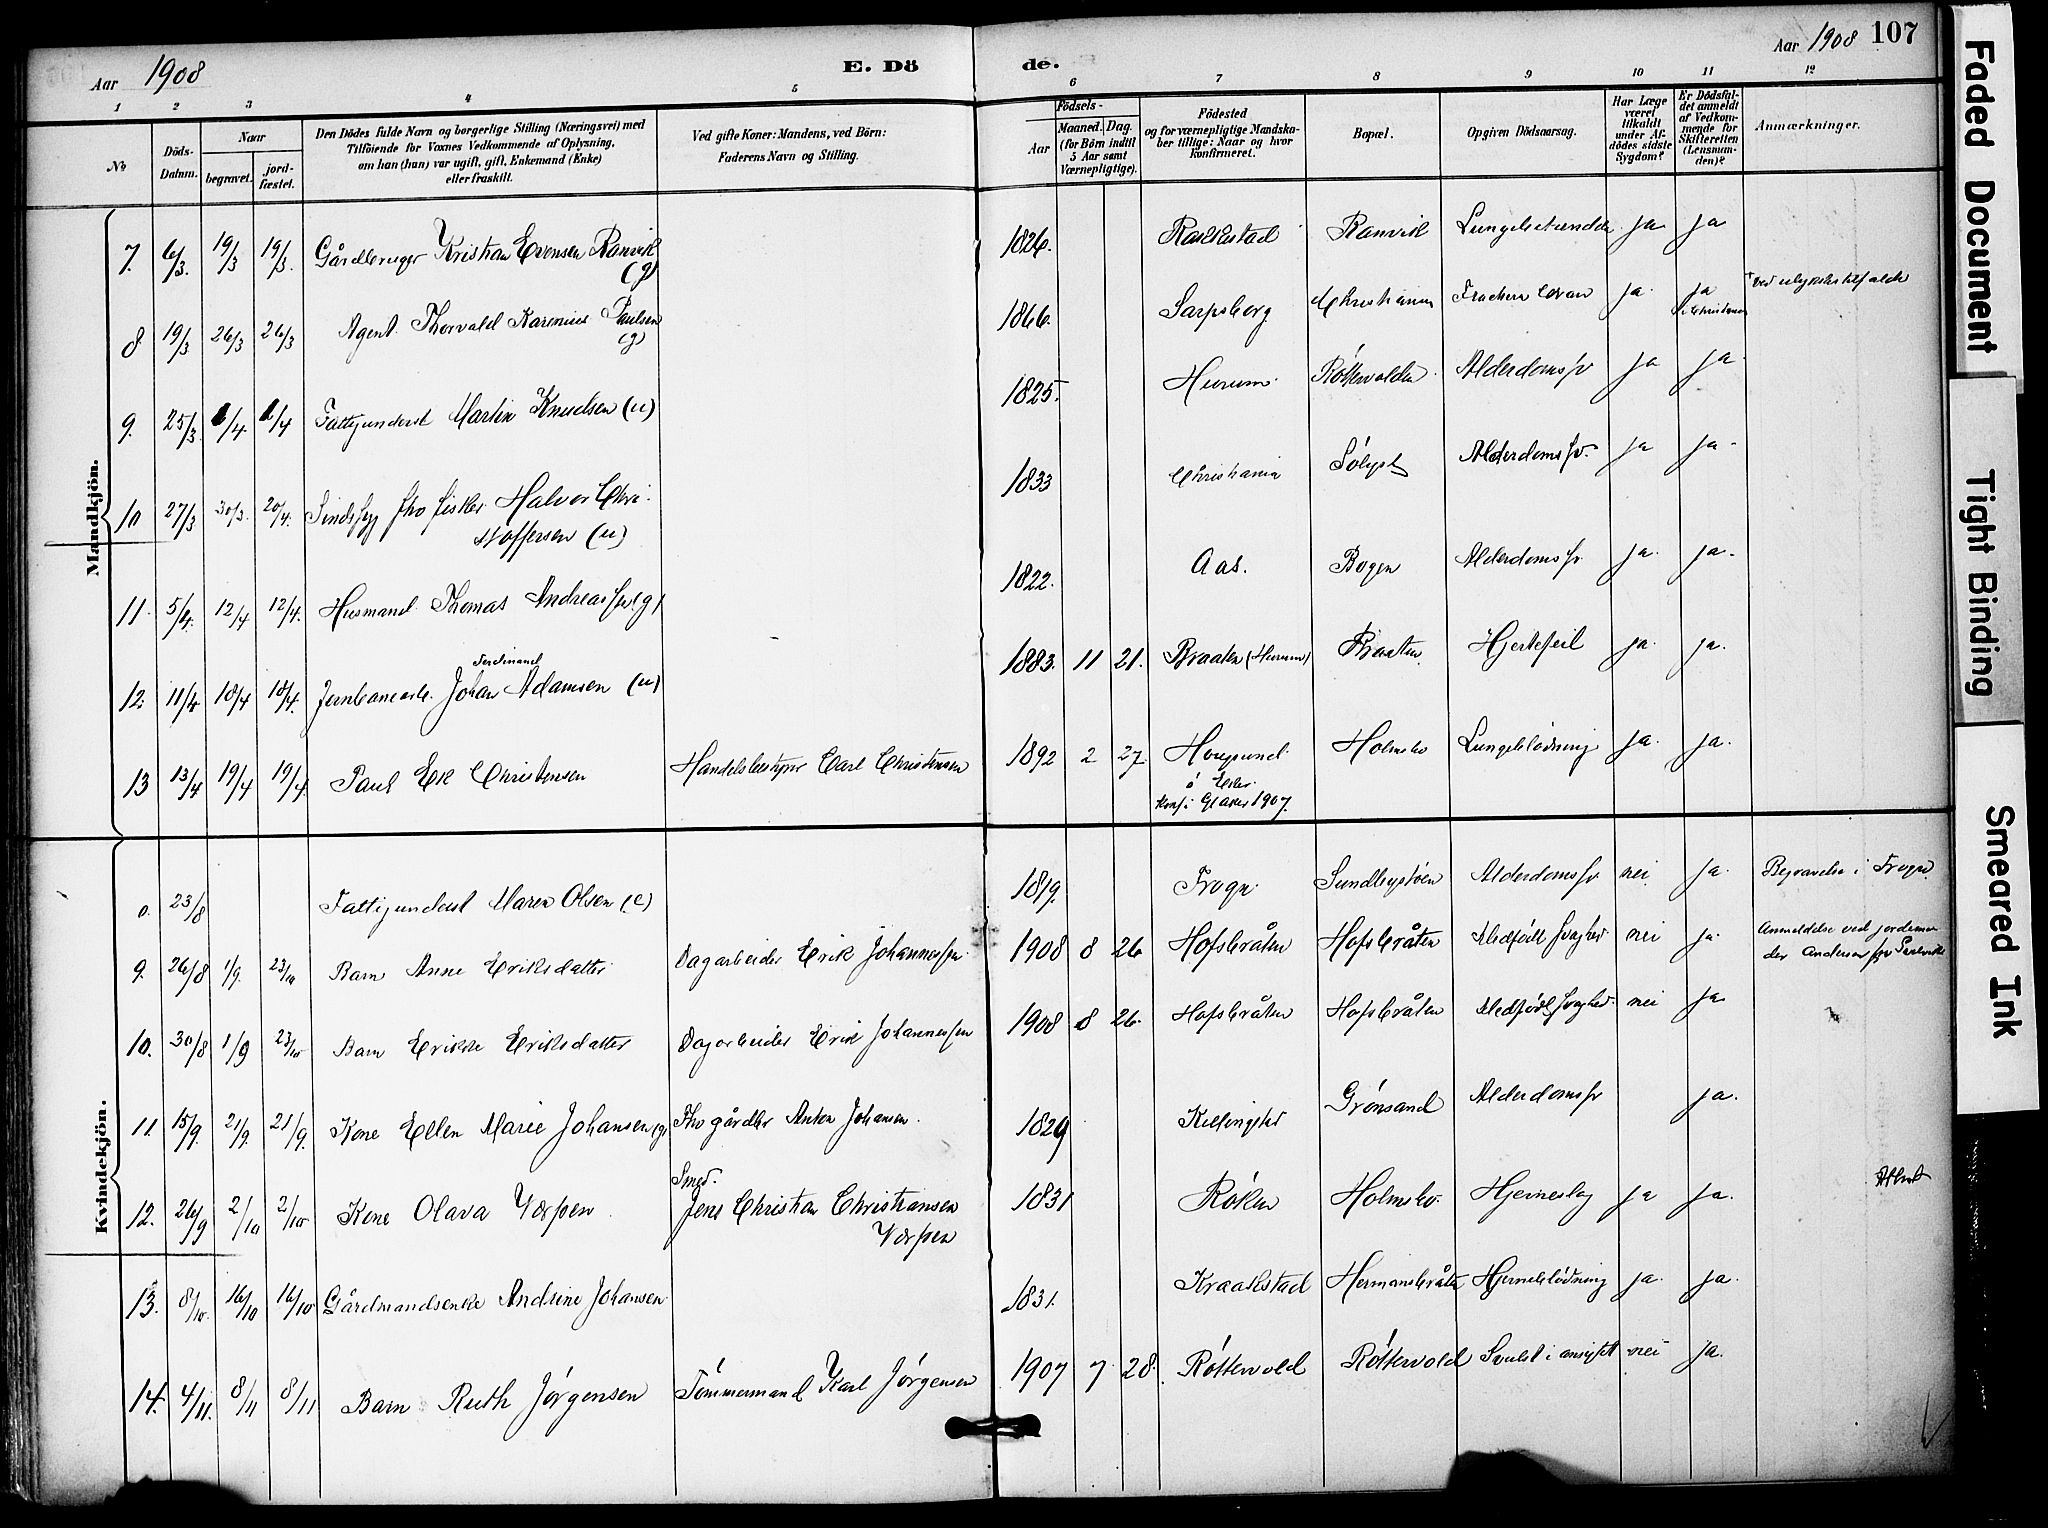 Aar 1908
E. Dö de.
Aar 1908 107
1 2 3 4 5 6 7 8 9 10 11 12
No
Döds-Datum.
Naar
begravet.
jord-fæstet.
Den Dödes fulde Navn og borgerlige Stilling (Næringsvei) med
Tilföiende for Voxnes Vedkommende af Oplysning,
om han (hun) var ugift, gift, Enkemand (Enke)
eller fraskilt.
Ved gifte Koner: Mandens, ved Börn:
Faderens Navn og Stilling.
Födsels-
Aar
Maaned. Dag.
(for Börn indtil
5 Aar samt
Værnepligtige).
Födested
og for værnepligtige Mandska-
ber tillige: Naar og hvor
konfirmeret.
Bopæl.
Opgiven Dödsaarsag.
Har Læge
været
tilkaldt
under Af-
dödes sidste
Sygdom?
Er Dödsfal-
det anmeldt
af Vedkom-
mende for
Skifteretten
(Lensman-
den)?
Anmærkninger.
Mandkjön.
7. 6/3. 19/3 19/3. Gårdbruger Kristian Evensen Ranvik (g) 1826. Rakkestad Ranvik ja ja
8 19/3. 26/3 26/3 Agent Thorvald Karenius Paulsen (g) 1866. Sarpsborg Christiania ja. ja i Christiania ved ulykkestilfælde
9. 25/3. 1/4. 1/4 Fattigunderst Martin Knudsen (u) 1825. Hurum Röttevolden. Alderdomssv ja ja.
10 27/3 30/3. 20/4. Sindssyg fhv fisker Halvor Chri-
stoffersen (u) 1833 Christiania Sölyst Alderdomssv. ja ja.
11. 5/4. 12/4 12/4. Husmand Thomas Andreassen (g) 1822. Aas. Bogen Alderdomssv ja. ja.
Ferdinand
12. 11/4 18/4 18/4. Jernbanearb. Johan Adamsen (u) 1883. 11 21. Braaten (Hurum) Braaten Hjertefeil ja. ja.
13 13/4 19/4 19/4. Paul Ek Christensen Handelsbestyrer Carl Christensen 1892 2 27. Hougsund
ö Eker
Konf. i Glaker 1907. Holmsbo Lungeblödning ja. ja.
Kvindekjön.
8. 23/8 Fattigunderst Maren Olsen (e) 1819. Frogn. Sundbystöen Alderdomssv nei ja. Begravelse i Frogn
9. 26/8 1/9. 23/10 Barn Anne Eriksdatter Dagarbeider Erik Johannessen 1908 8 26 Hofsbråten Hofsbråten Medfödt svaghed nei ja. Anmeldelse ved jordemo-
der Andersen
10. 30/8 1/9 23/10 Barn Erikke Eriksdatter Dagarbeider Erik Johannessen 1908 8 26. Hofsbråten Hofsbråten Medfödt svaghed. nei ja.
11. 15/9. 21/9. 21/9. Kone Ellen Marie Johansen (g) Fhv gårdbr Anton Johansen. 1829 Grönsand Alderdomssv ja.
12. 26/9 2/10 2/10 Kone Olava Værpen Smed.
Jens Christian Christiansen
Værpen 1831 Röken Holmsbo. Hjerneslag ja ja. Attest
13. 8/10. 16/10 16/10 Gårdmandsenke Andrine Johansen. 1831. Kraakstad Hermansbråten Hjerneblödning ja. ja.
14. 4/11. 8/11 8/11 Barn Ruth Jörgensen Tömmermand Karl Jörgensen 1907 7 28. Röttevold Röttevold Svulst i ansigtet nei ja.
Faded Document
Tight Binding
Smeared Ink